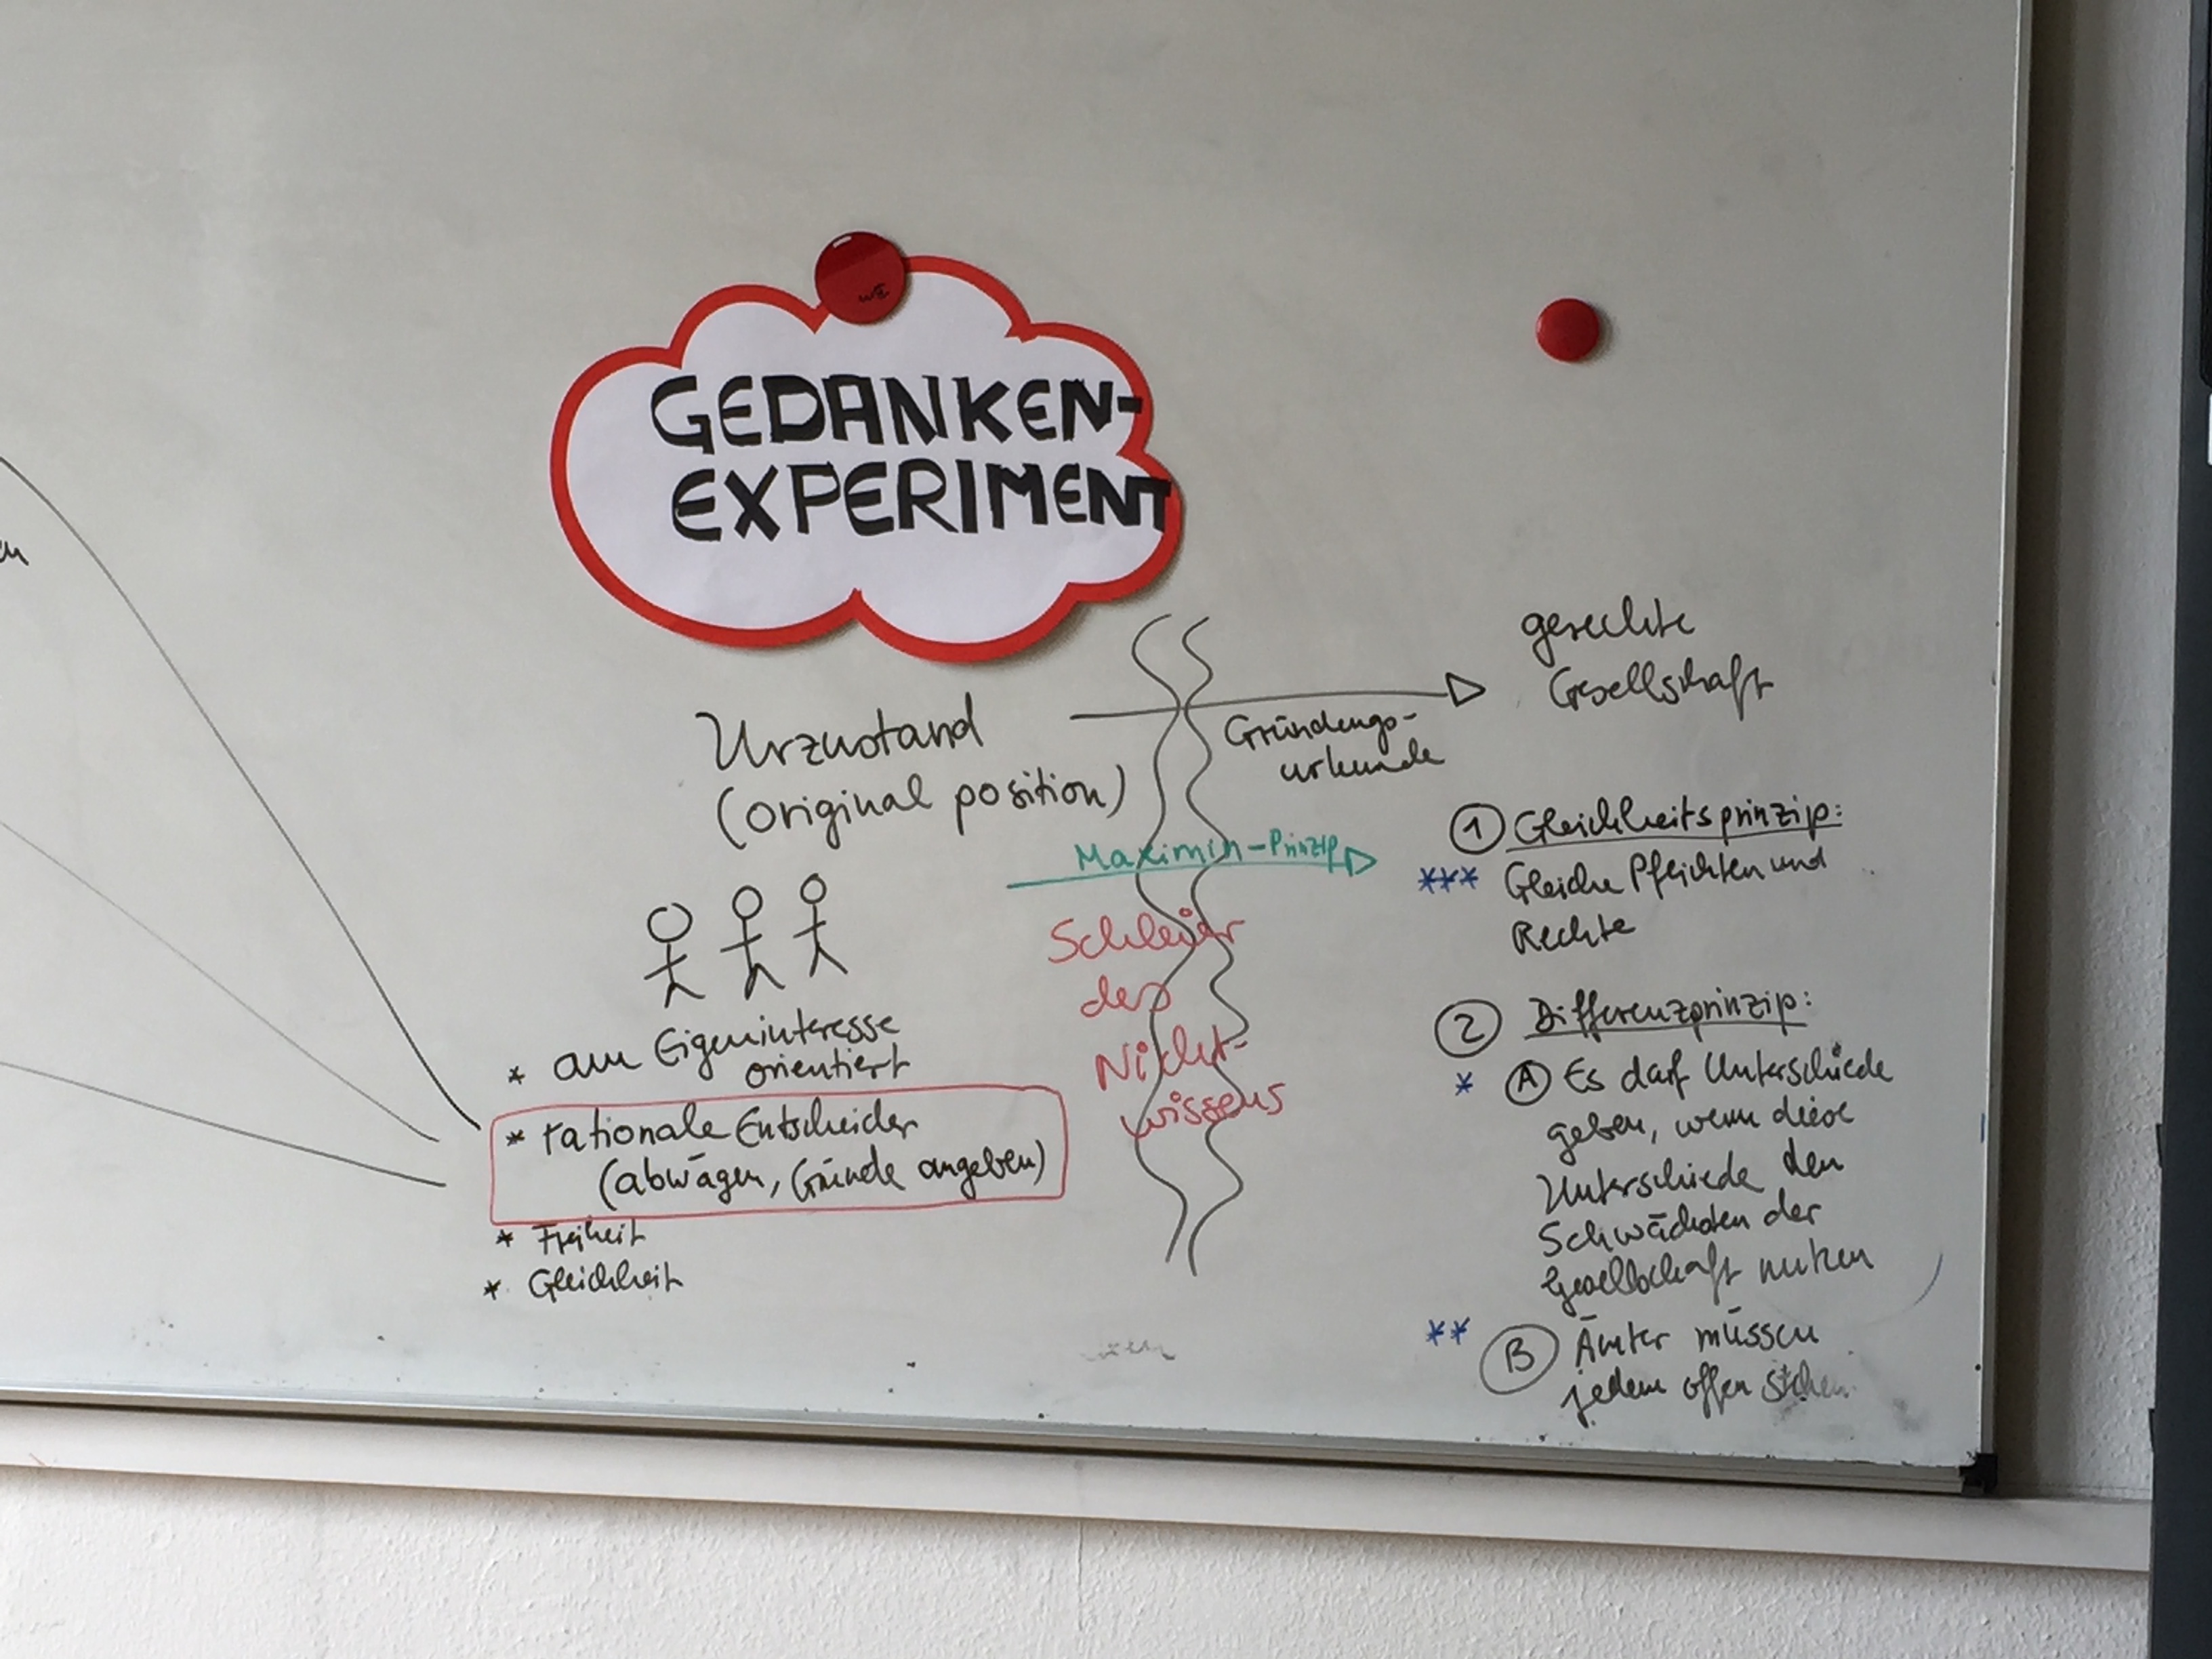 GEDANKEN-
EXPERIMENT
Urzustand
(original position)
Gründungs-
urkunde
gerechte
Gesellschaft
Maximin-Prinzip
Schleier
des
Nicht-
wissens
* am Eigeninteresse
orientiert
* rationale Entscheider
(abwägen, Gründe angeben)
* Freiheit
* Gleichheit
① Gleichheitsprinzip:
*** Gleiche Pflichten und
Rechte
② Differenzprinzip:
* Ⓐ Es darf Unterschiede
geben, wenn diese
Unterschiede den
Schwächsten der
Gesellschaft nutzen
** Ⓑ Ämter müssen
jedem offen stehen